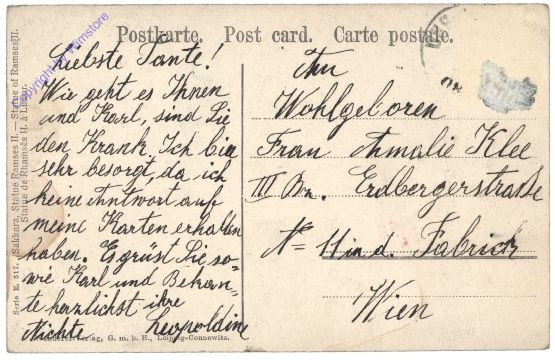 Postkarte. Post card. Carte postale.
Liebste Tante!
Wie geht es Ihnen
und Karl, sind Sie
den Krank. Ich bin
sehr besorgt, da ich
keine Antwort auf
meine Karten erhalten
haben. Es grüst Sie so=
wie Karl und Bekan=
te herzlichst ihre
Nichte Leopoldine
An
Wohlgeboren
Frau Amalie Klee
III Bz. Erdbergerstraße
No 11 in d. Fabrick
Wien
Serie E. 517. Sakkara, Statue Ramses II. — Statue of Ramses II.
Statue de Ramsès II. à
Verlag, G. m. b. H., Leipzig-Connewitz.
copyright by Filmstore